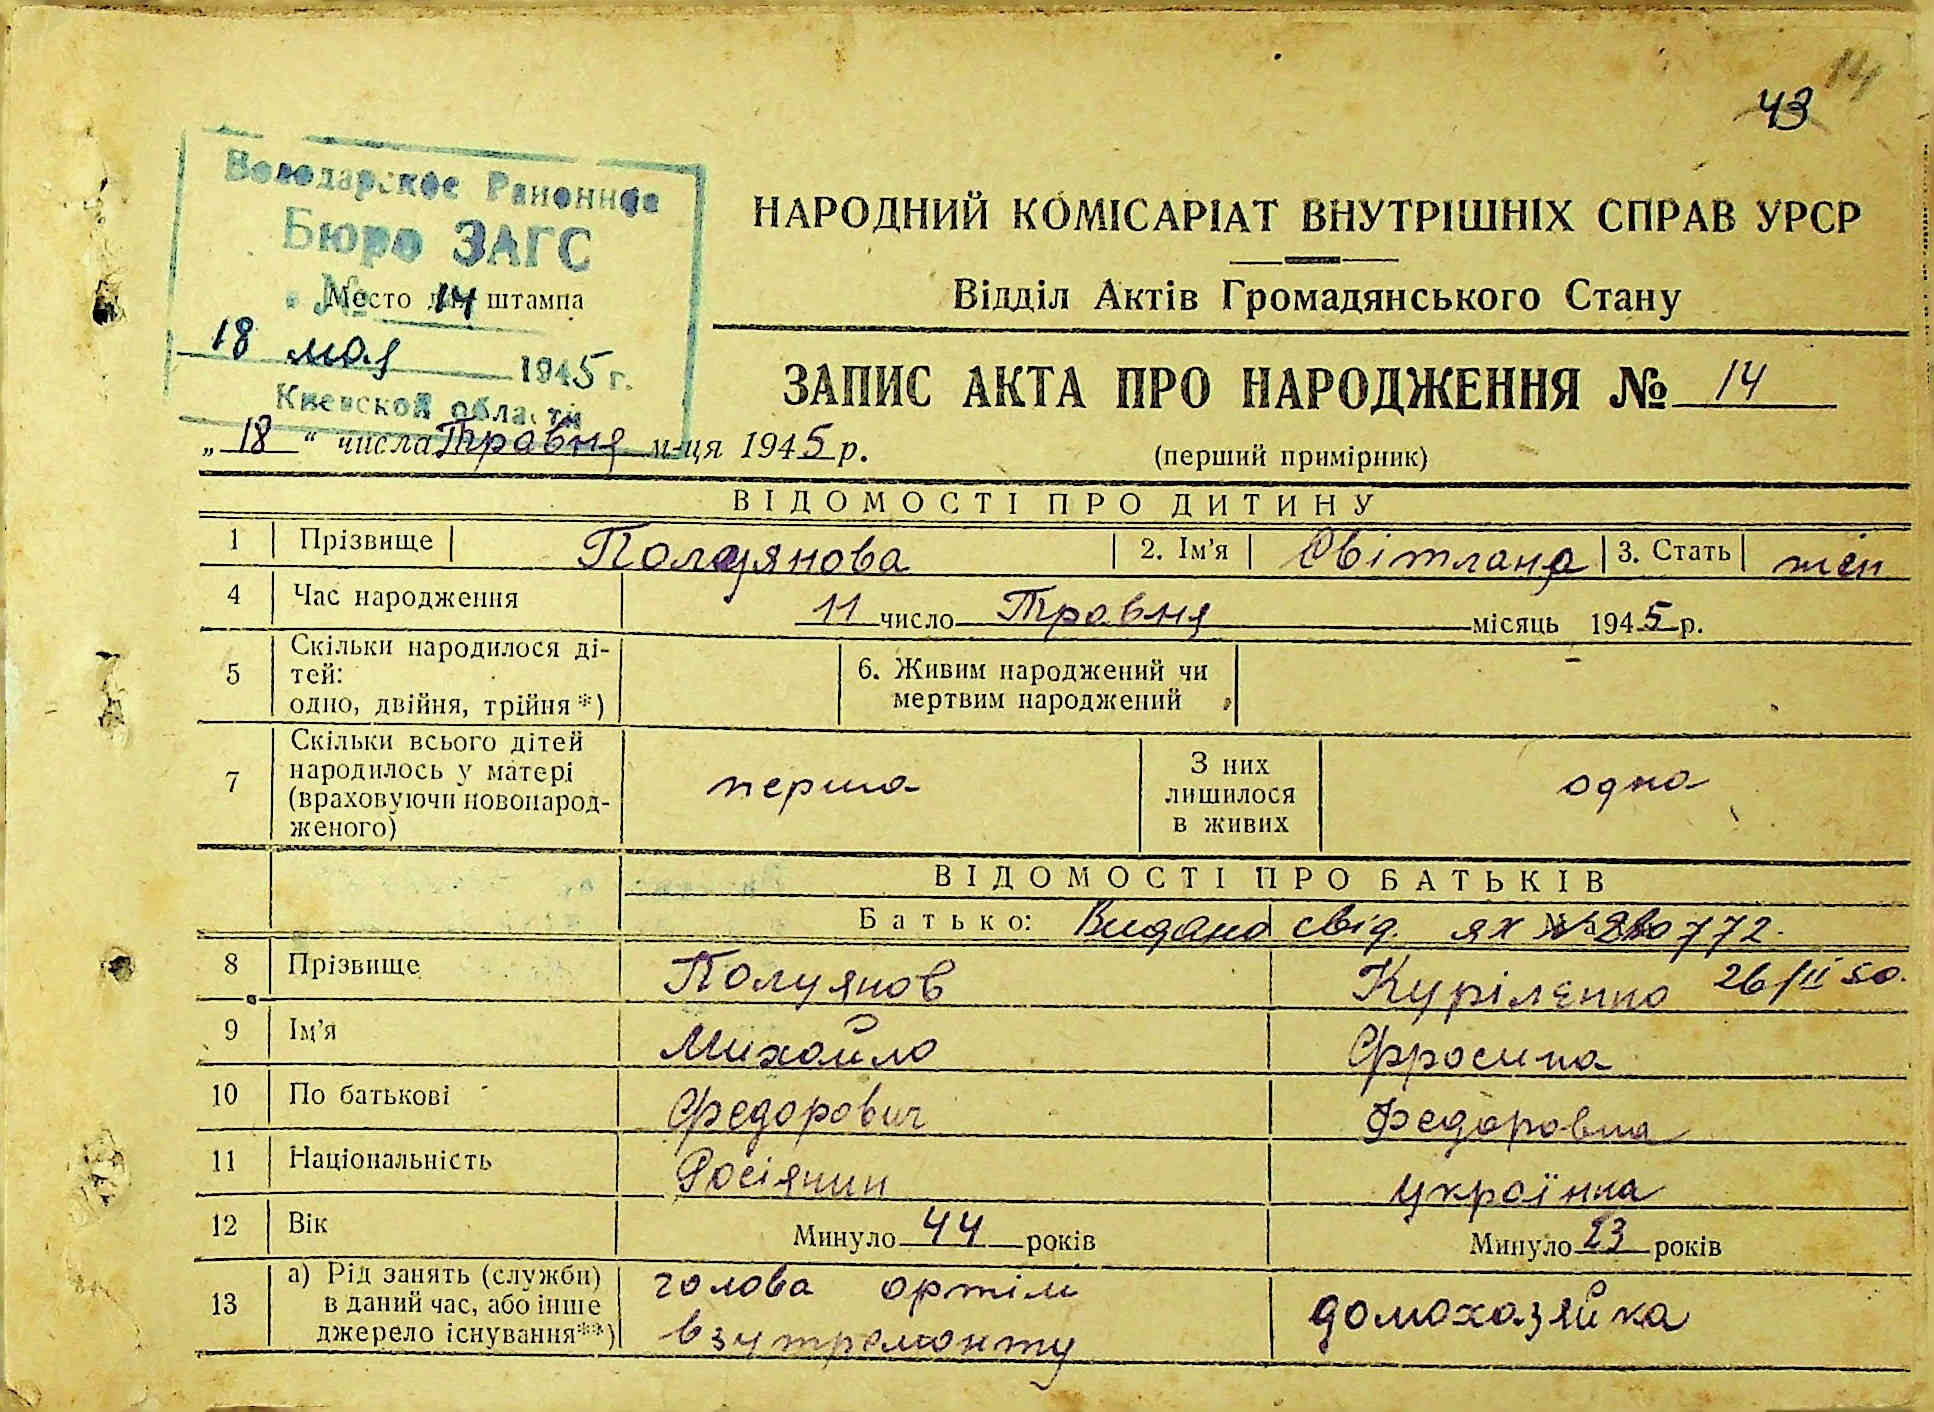 14
43
Володарское Районное
Бюро ЗАГС
№ 14
Место для штампа
18 мая 1945 г.
Киевской области
НАРОДНИЙ КОМІСАРІАТ ВНУТРІШНІХ СПРАВ УРСР
Відділ Актів Громадянського Стану
ЗАПИС АКТА ПРО НАРОДЖЕННЯ № 14
„18“ числа Травня м-ця 1945 р.
(перший примірник)
ВІДОМОСТІ ПРО ДИТИНУ
1 Прізвище Полуянова 2. Ім'я Світлана 3. Стать жін
4 Час народження 11 число Травня місяць 1945 р.
5 Скільки народилося ді-
тей:
одно, двійня, трійня*)
6. Живим народжений чи
мертвим народжений
7 Скільки всього дітей
народилось у матері
(враховуючи новонарод-
женого)
перша
З них
лишилося
в живих
одна
ВІДОМОСТІ ПРО БАТЬКІВ
Батько: Видано свід. ях № 772.
26/II 50.
8 Прізвище Полуянов Куріленко
9 Ім'я Михайло Фросина
10 По батькові Федорович Федоровна
11 Національність Росіянин українка
12 Вік Минуло 44 років Минуло 23 років
13 а) Рід занять (служби)
в даний час, або інше
джерело існування**)
голова артіли
взутремонту
домохазяйка